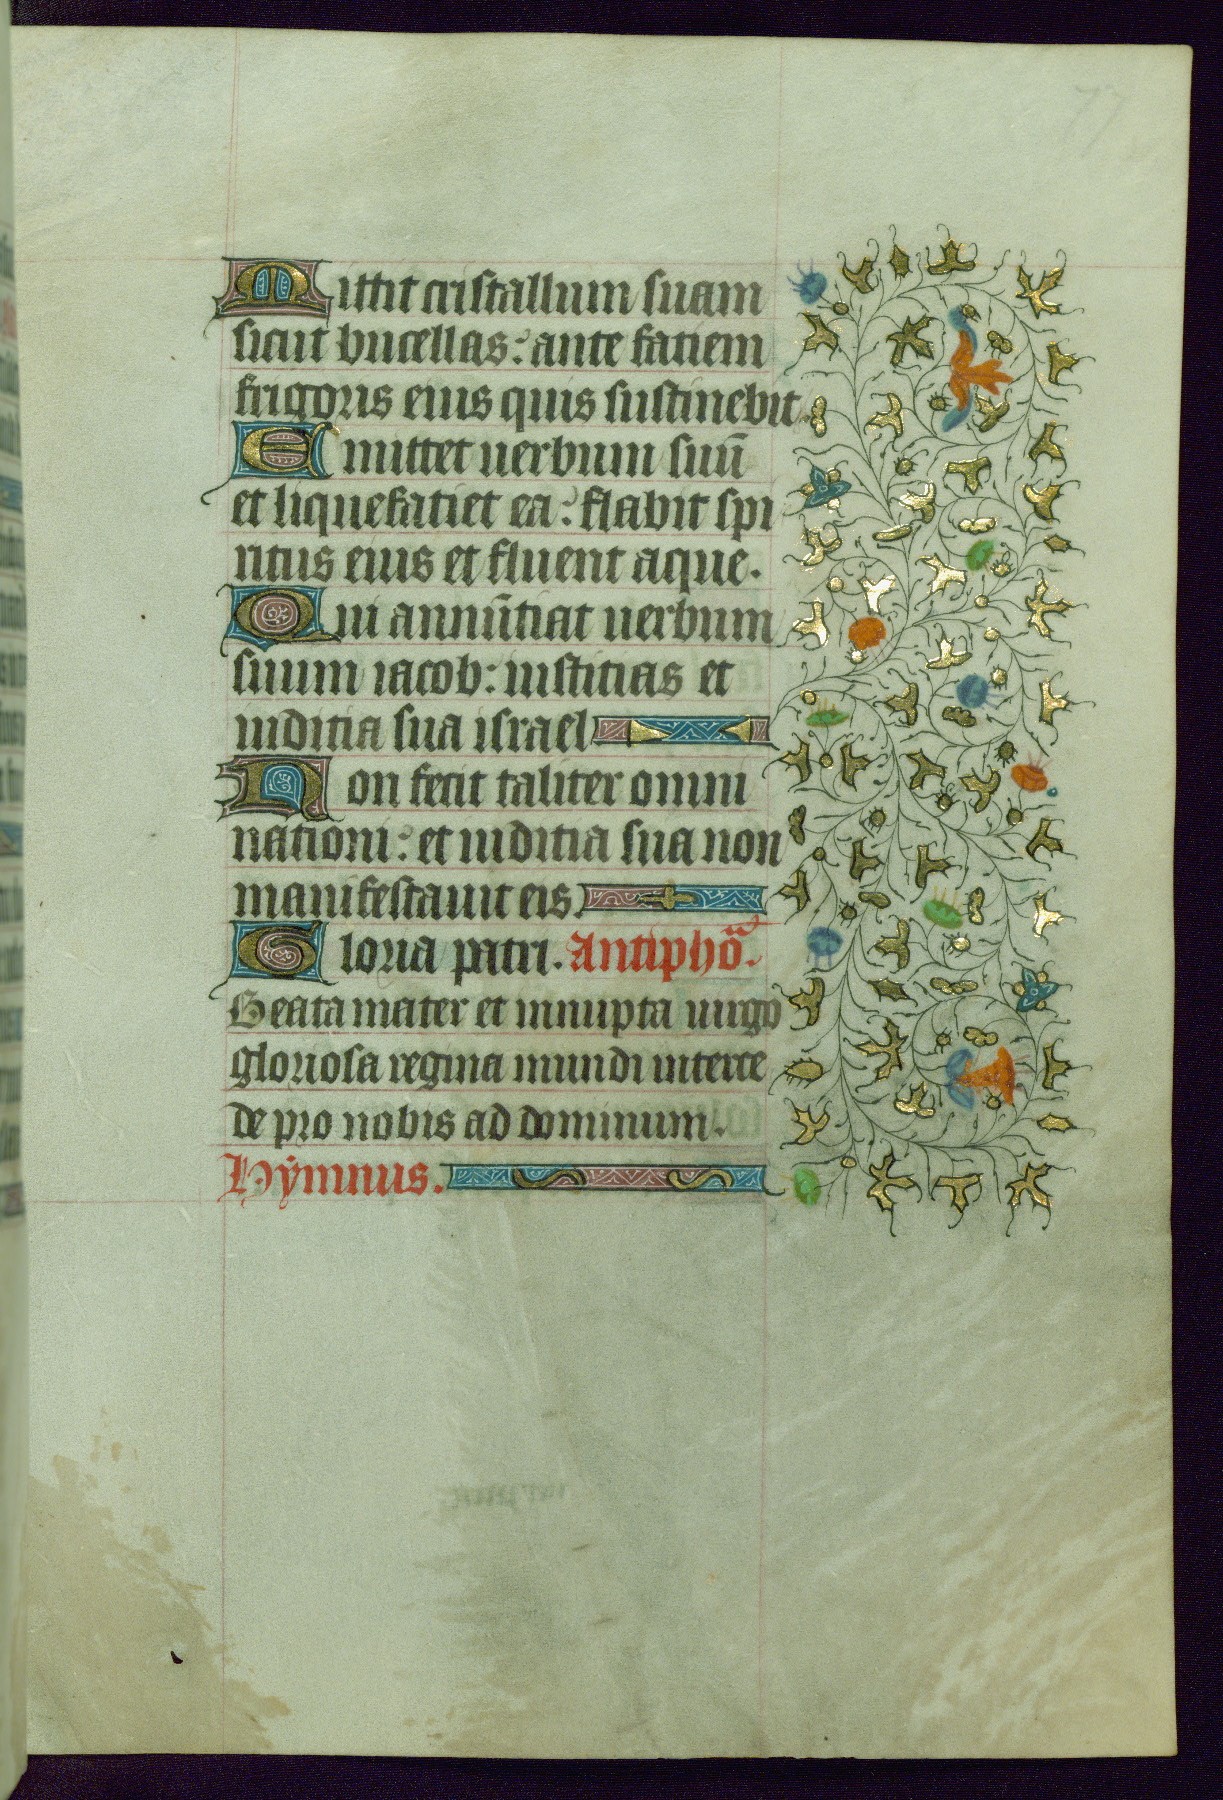 77
Mittit cristallum suam
sicut bucellas: ante fatiem
frigoris eius quis sustinebit.
Emittet uerbum suū
et liquefatiet ea: flabit spi
ritus eius et fluent aque.
Qui annūtiat uerbum
suum iacob: iustitias et
iuditia sua israel
Non fecit taliter omni
nationi: et iuditia sua non
manifestauit eis.
Gloria patri. Antiphōa.
Beata mater et innupta uirgo
gloriosa regina mundi interce
de pro nobis ad dominum.
Hẏmnus.